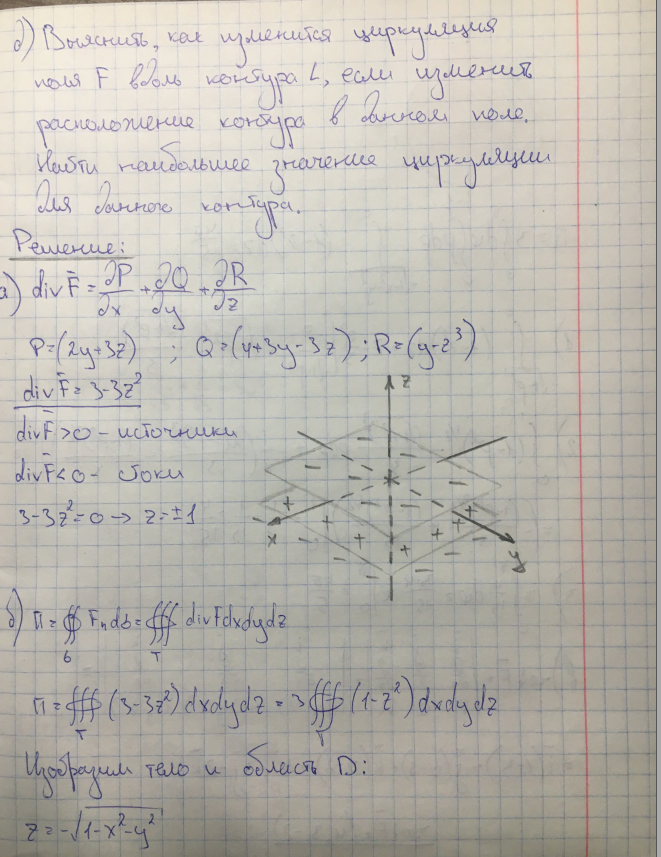 д) Выяснить, как изменится циркуляция
поля F вдоль контура L, если изменить
расположение контура в данном поле.
Найти наибольшее значение циркуляции
для данного контура.
Решение:
а) div F̄ = ∂P/∂x + ∂Q/∂y + ∂R/∂z
P=(2y+3z) ; Q=(4+3y-3z) ; R=(y-z³)
div F̄ = 3-3z²
div F̄ >0 - источники
div F̄ <0 - стоки
3-3z²=0 → z=±1
z
x
y
б) П = ∯ Fₙ dб = ∭ div F dx dy dz
б T
П = ∭ (3-3z²) dx dy dz = 3 ∭ (1-z²) dx dy dz
T T
Изобразим тело и область D:
z = -√(1-x²-y²)